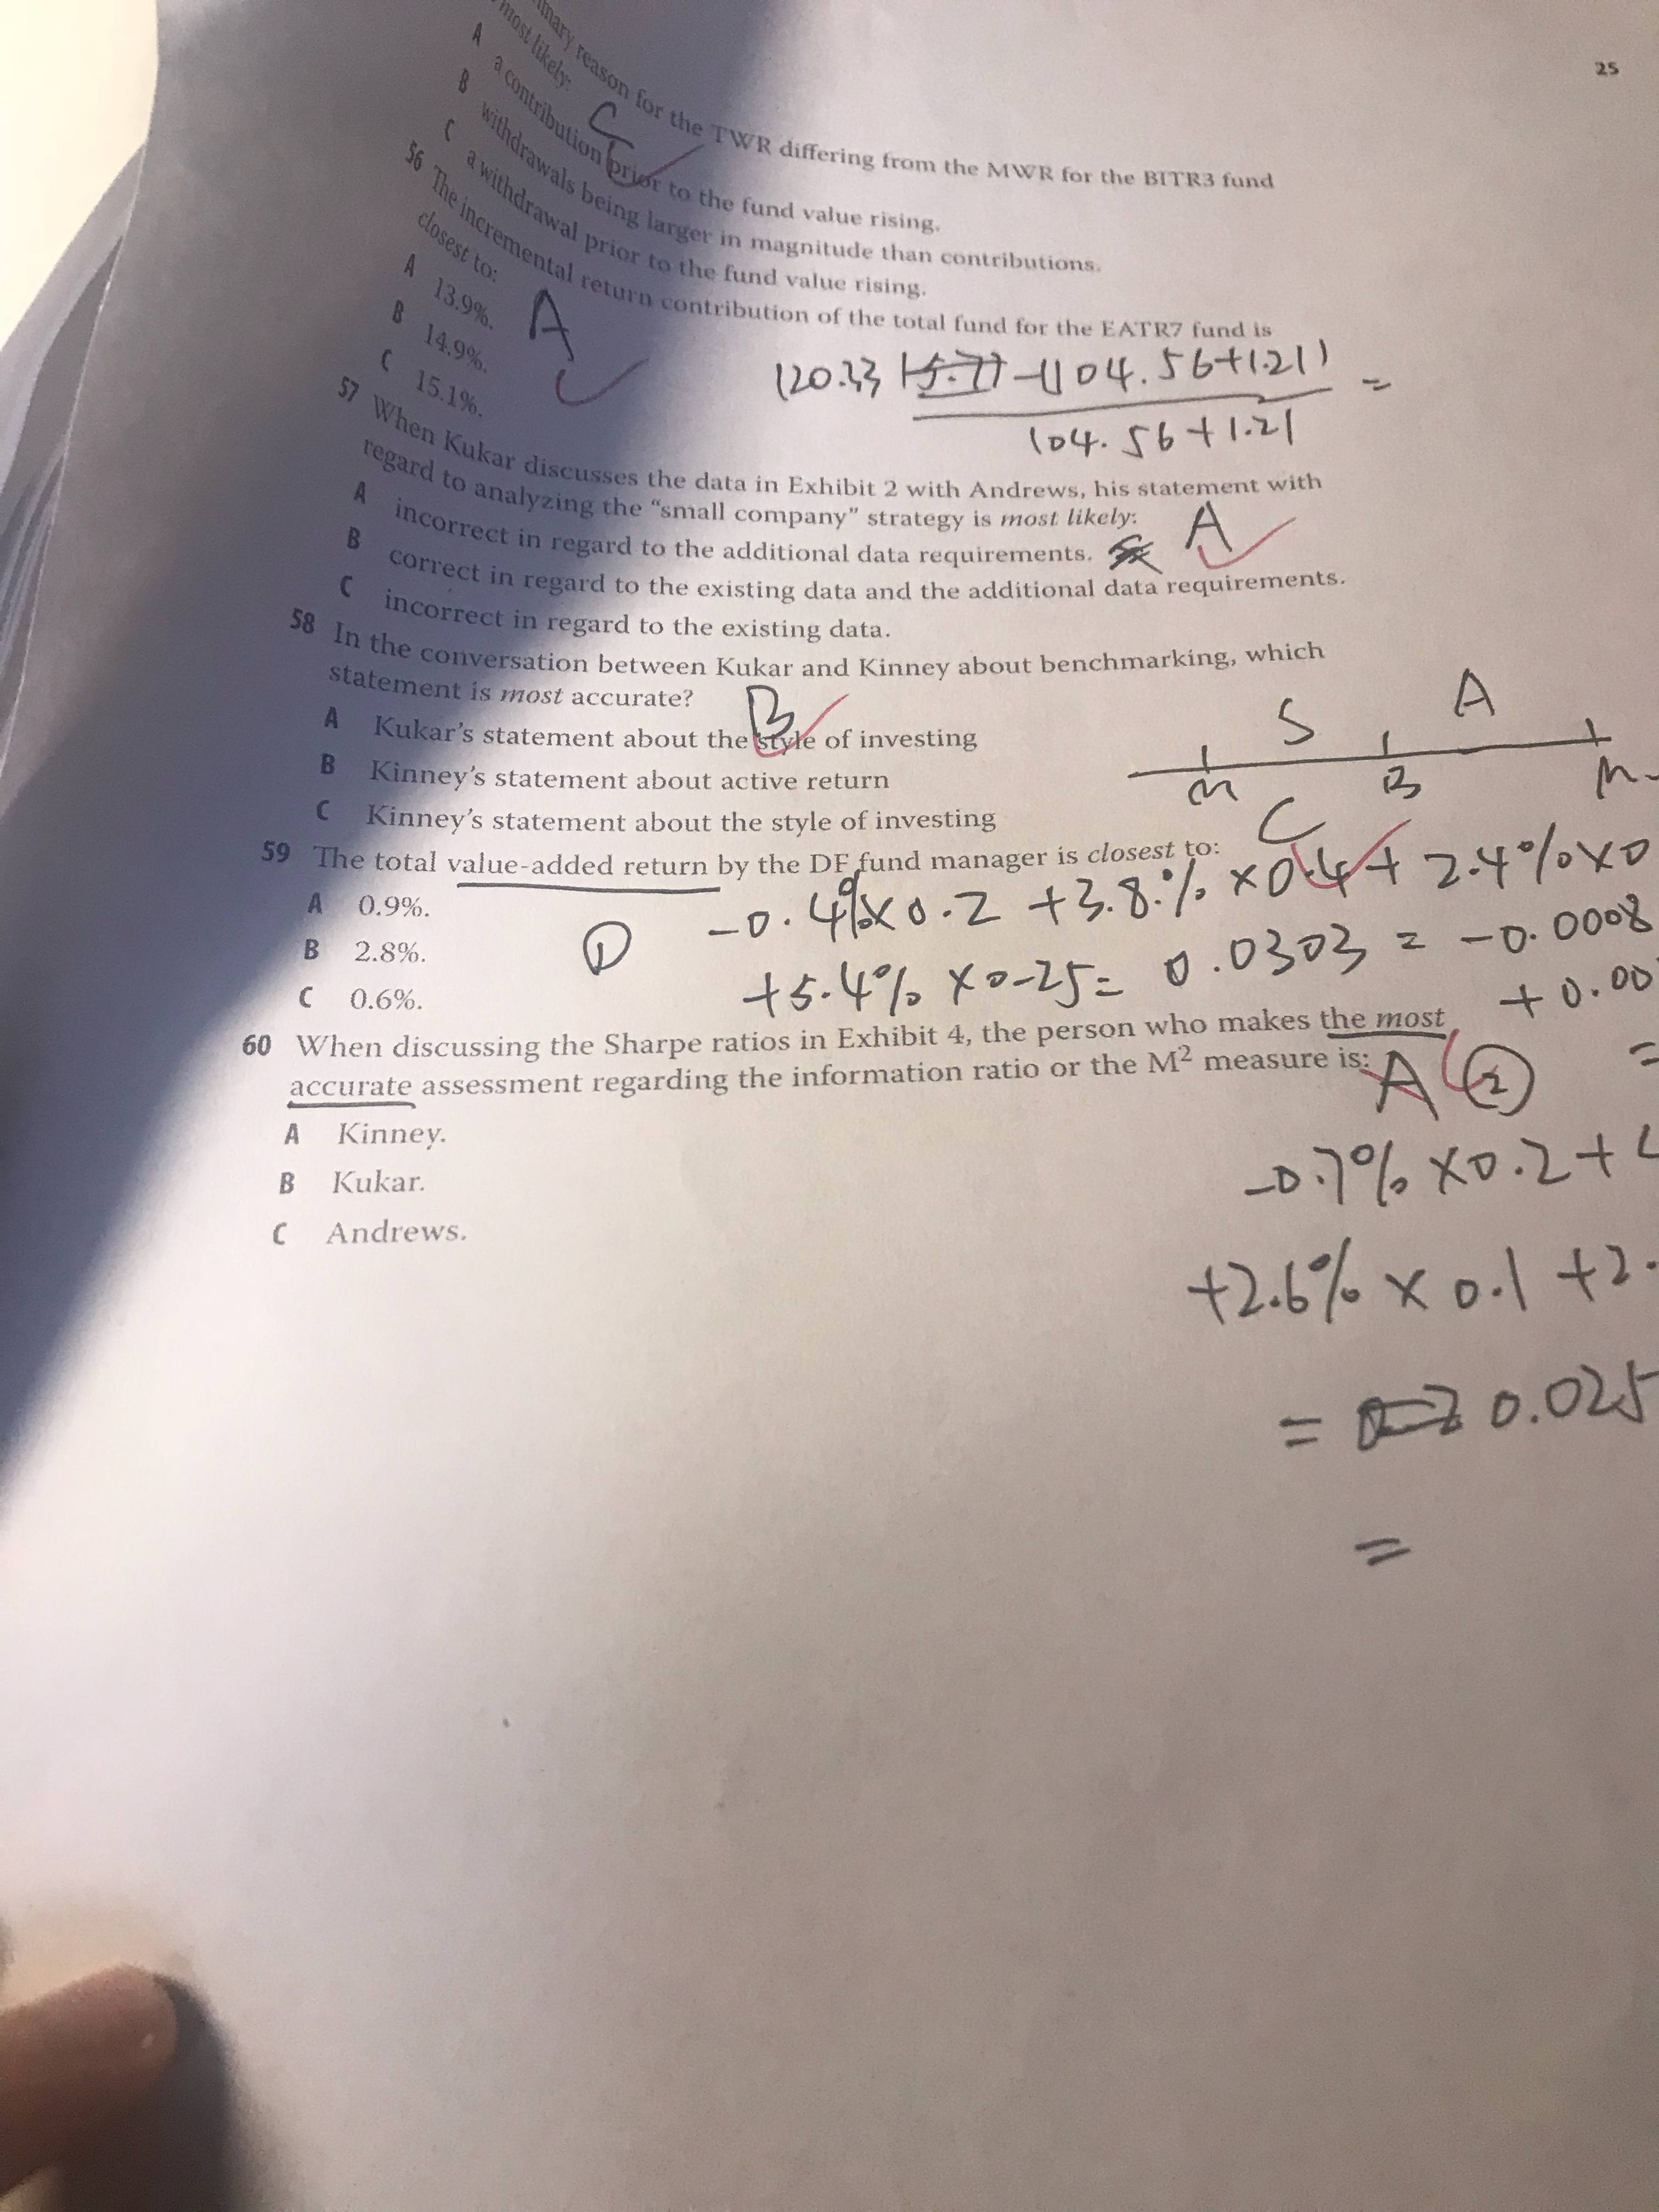 25
mary reason for the TWR differing from the MWR for the BITR3 fund
most likely:
C
A a contribution prior to the fund value rising.
B withdrawals being larger in magnitude than contributions.
C a withdrawal prior to the fund value rising.
56 The incremental return contribution of the total fund for the EATR7 fund is
closest to:
A 13.9%.
A
B 14.9%.
C 15.1%.
120.33 -(104.56+1.21)
=
104.56+1.21
57 When Kukar discusses the data in Exhibit 2 with Andrews, his statement with
regard to analyzing the “small company” strategy is most likely:
A incorrect in regard to the additional data requirements.
A
B correct in regard to the existing data and the additional data requirements.
C incorrect in regard to the existing data.
58 In the conversation between Kukar and Kinney about benchmarking, which
statement is most accurate?
B
A Kukar's statement about the style of investing
B Kinney's statement about active return
C Kinney's statement about the style of investing
S A
M B M
59 The total value-added return by the DF fund manager is closest to:
C
A 0.9%.
B 2.8%.
C 0.6%.
① -0.4%×0.2 +3.8% ×0.4+ 2.4%×0
+5.4% ×0.25= 0.0303 = -0.0008
+0.00
60 When discussing the Sharpe ratios in Exhibit 4, the person who makes the most
accurate assessment regarding the information ratio or the M² measure is:
A
A Kinney.
B Kukar.
C Andrews.
② =
-0.7% ×0.2+
+2.6% × 0.1 +2.
= 0.025
=